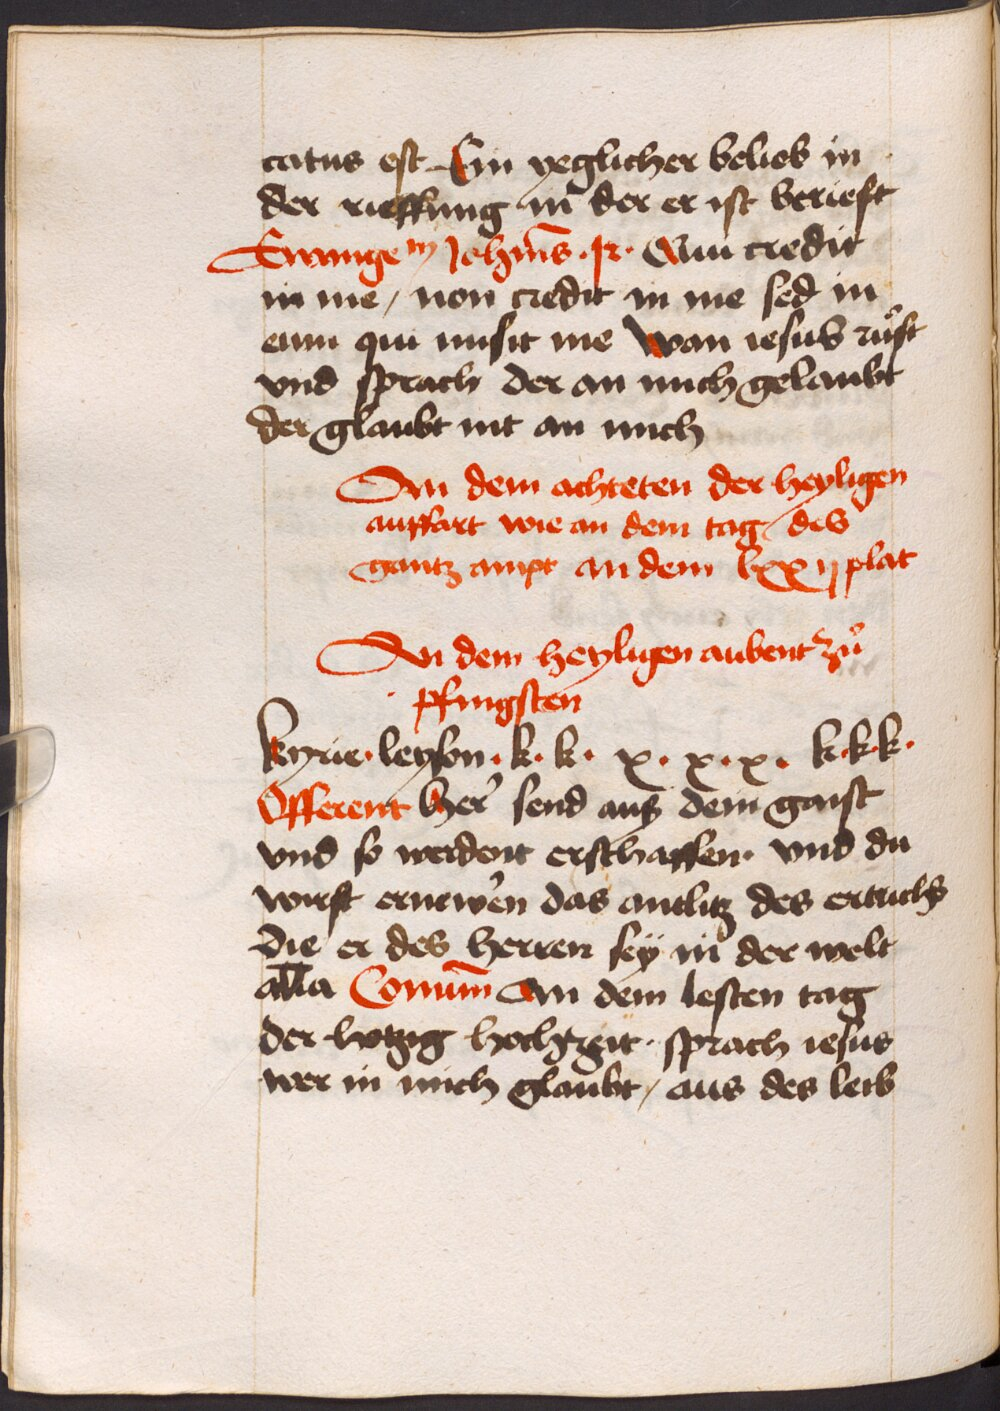 catus est Ein yeglicher beleib in
der rieffung in der er ist berieft
Ewange m Johnīs · Qui credit
in me / non credit in me sed in
eum qui misit me Wan iesus růft
vnd sprach der an mich gelaubt
der glaubt nit an mich
An dem achteten der heyligen
auffart wie an dem tag / des
gantz ampt an dem lxxij plat
An dem heyligen aubent zů
pfingsten
kyrie · leyson · k · k · x · x · x · k · k · k ·
Offerent her send aus dein gaist
vnd so werdent erschaffen · vnd du
wirst ernewen das antlitz des ertrichs
Die er des herren sey in der welt
alla Comūm An dem lesten tag
der hochzeit · sprach iesus
wer in mich glaubt / aus des leib